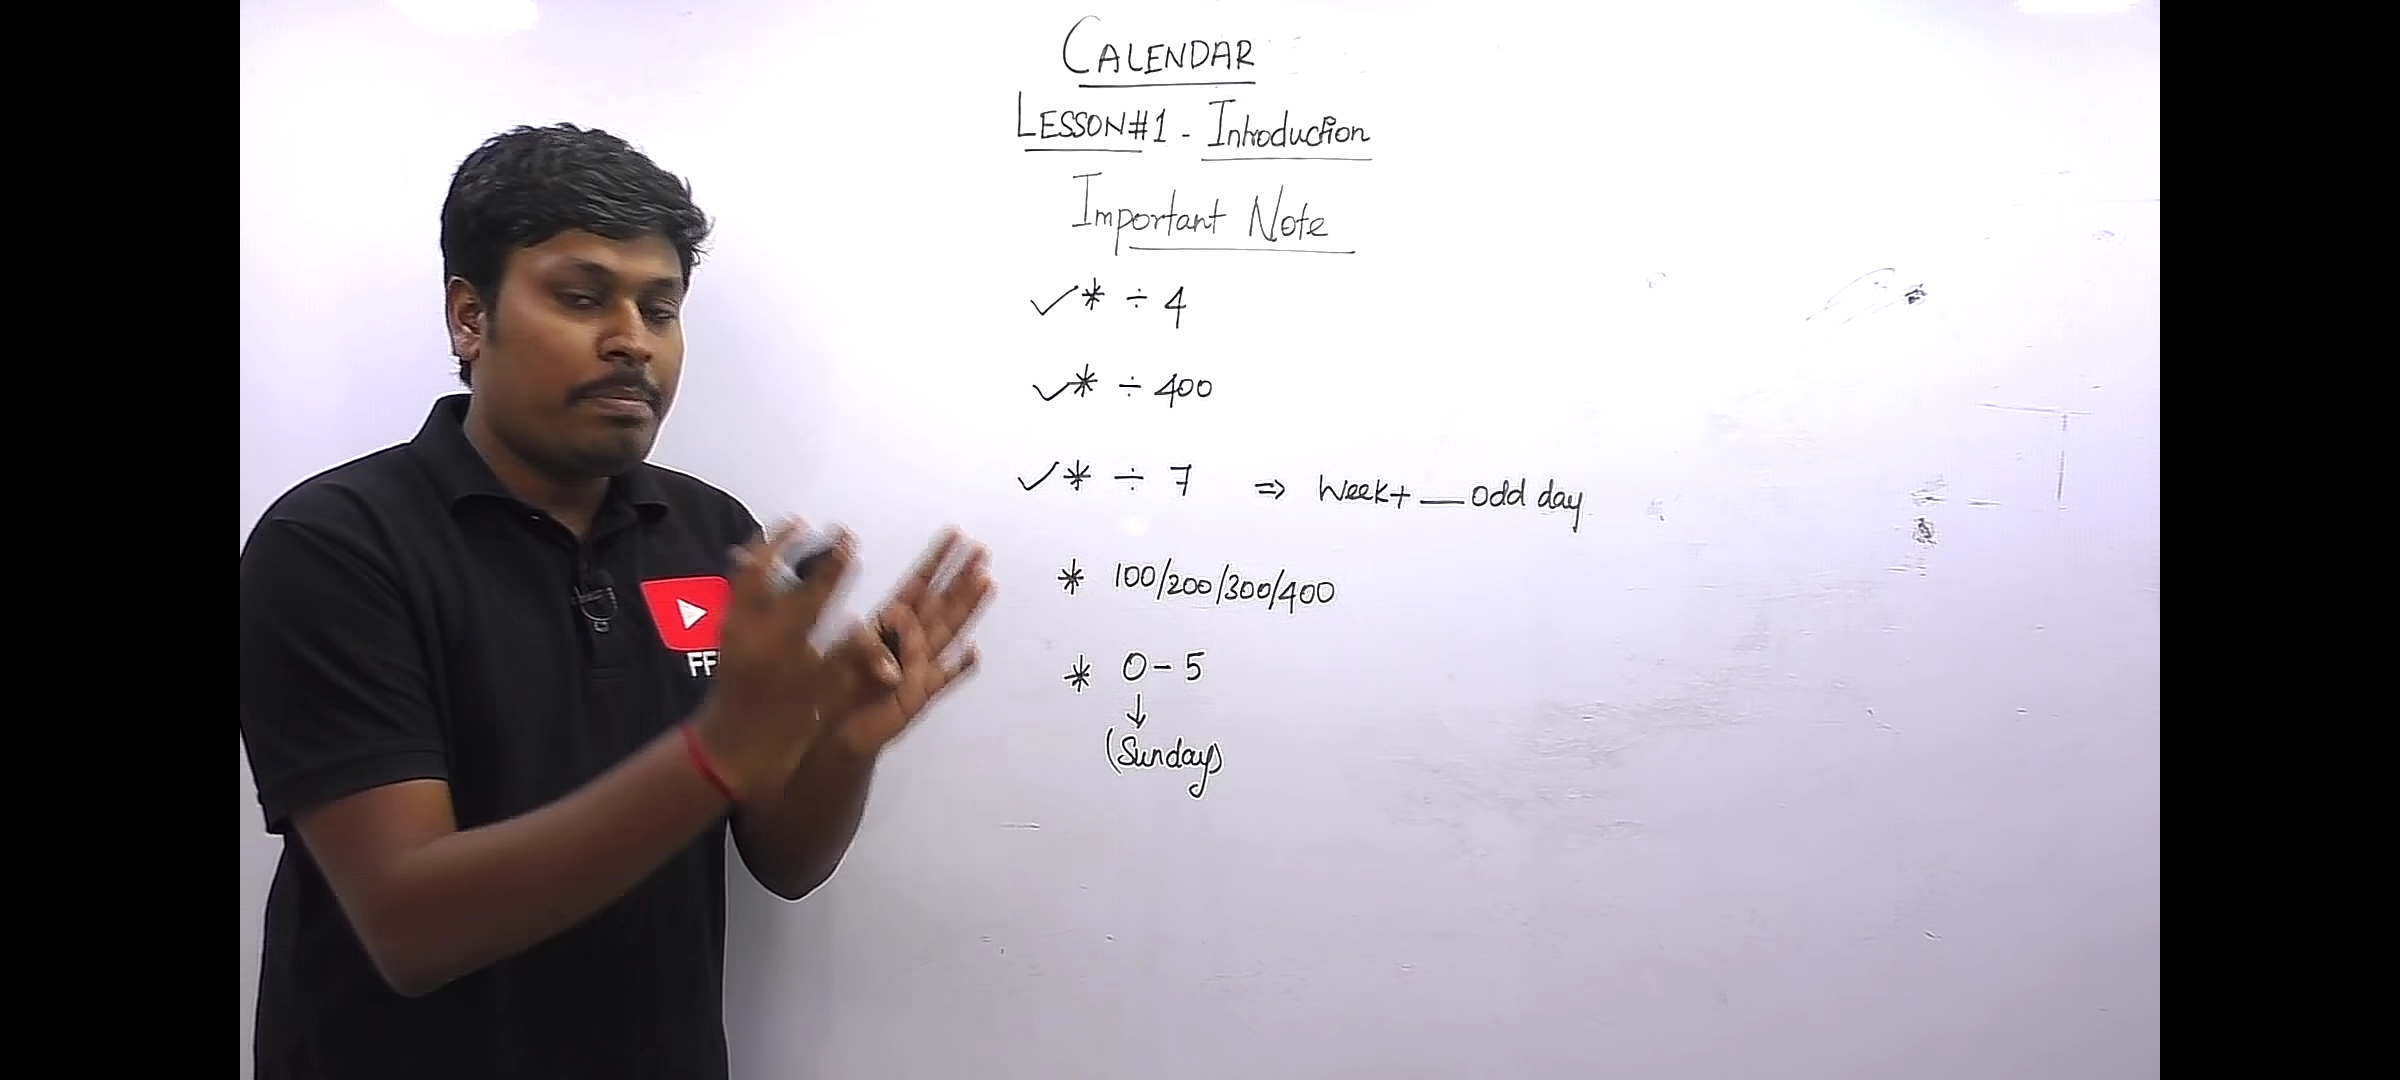 CALENDAR
LESSON#1 - Introduction
Important Note
✓* ÷ 4
✓* ÷ 400
✓* ÷ 7 ⇒ Week + __ odd day
* 100/200/300/400
* 0 - 5
↓
(Sunday)
FF